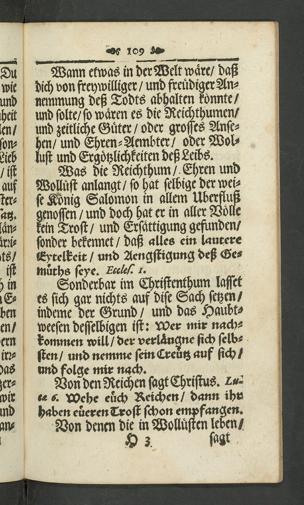 109
Wann etwas in der Welt wäre/ daß
dich von freywilliger/ und freüdiger An-
nemmung deß Todts abhalten könnte/
und solte/ so wären es die Reichthumen/
und zeitliche Güter/ oder grosses Anse-
hen/ und Ehren-Aembter/ oder Wol-
lust und Ergötzlichkeiten deß Leibs.
Was die Reichthum/ Ehren und
Wollust anlangt/ so hat selbige der wei-
se König Salomon in allem Uberfluß
genossen/ und doch hat er in aller Völle
kein Trost/ und Ersättigung gefunden/
sonder bekennet/ daß alles ein lautere
Eytelkeit/ und Aengstigung deß Ge-
müths seye. Eccles. 1.
Sonderbar im Christenthum lasset
es sich gar nichts auf dise Sach setzen/
indeme der Grund/ und das Haubt-
weesen desselbigen ist: Wer mir nach-
kommen will/ der verlaugne sich selb-
sten/ und nemme sein Creutz auf sich/
und folge mir nach.
Von den Reichen sagt Christus. Lu-
cæ 6. Wehe eüch Reichen/ dann ihr
haben eüeren Trost schon empfangen.
Von denen die in Wollüsten leben/
H 3 sagt